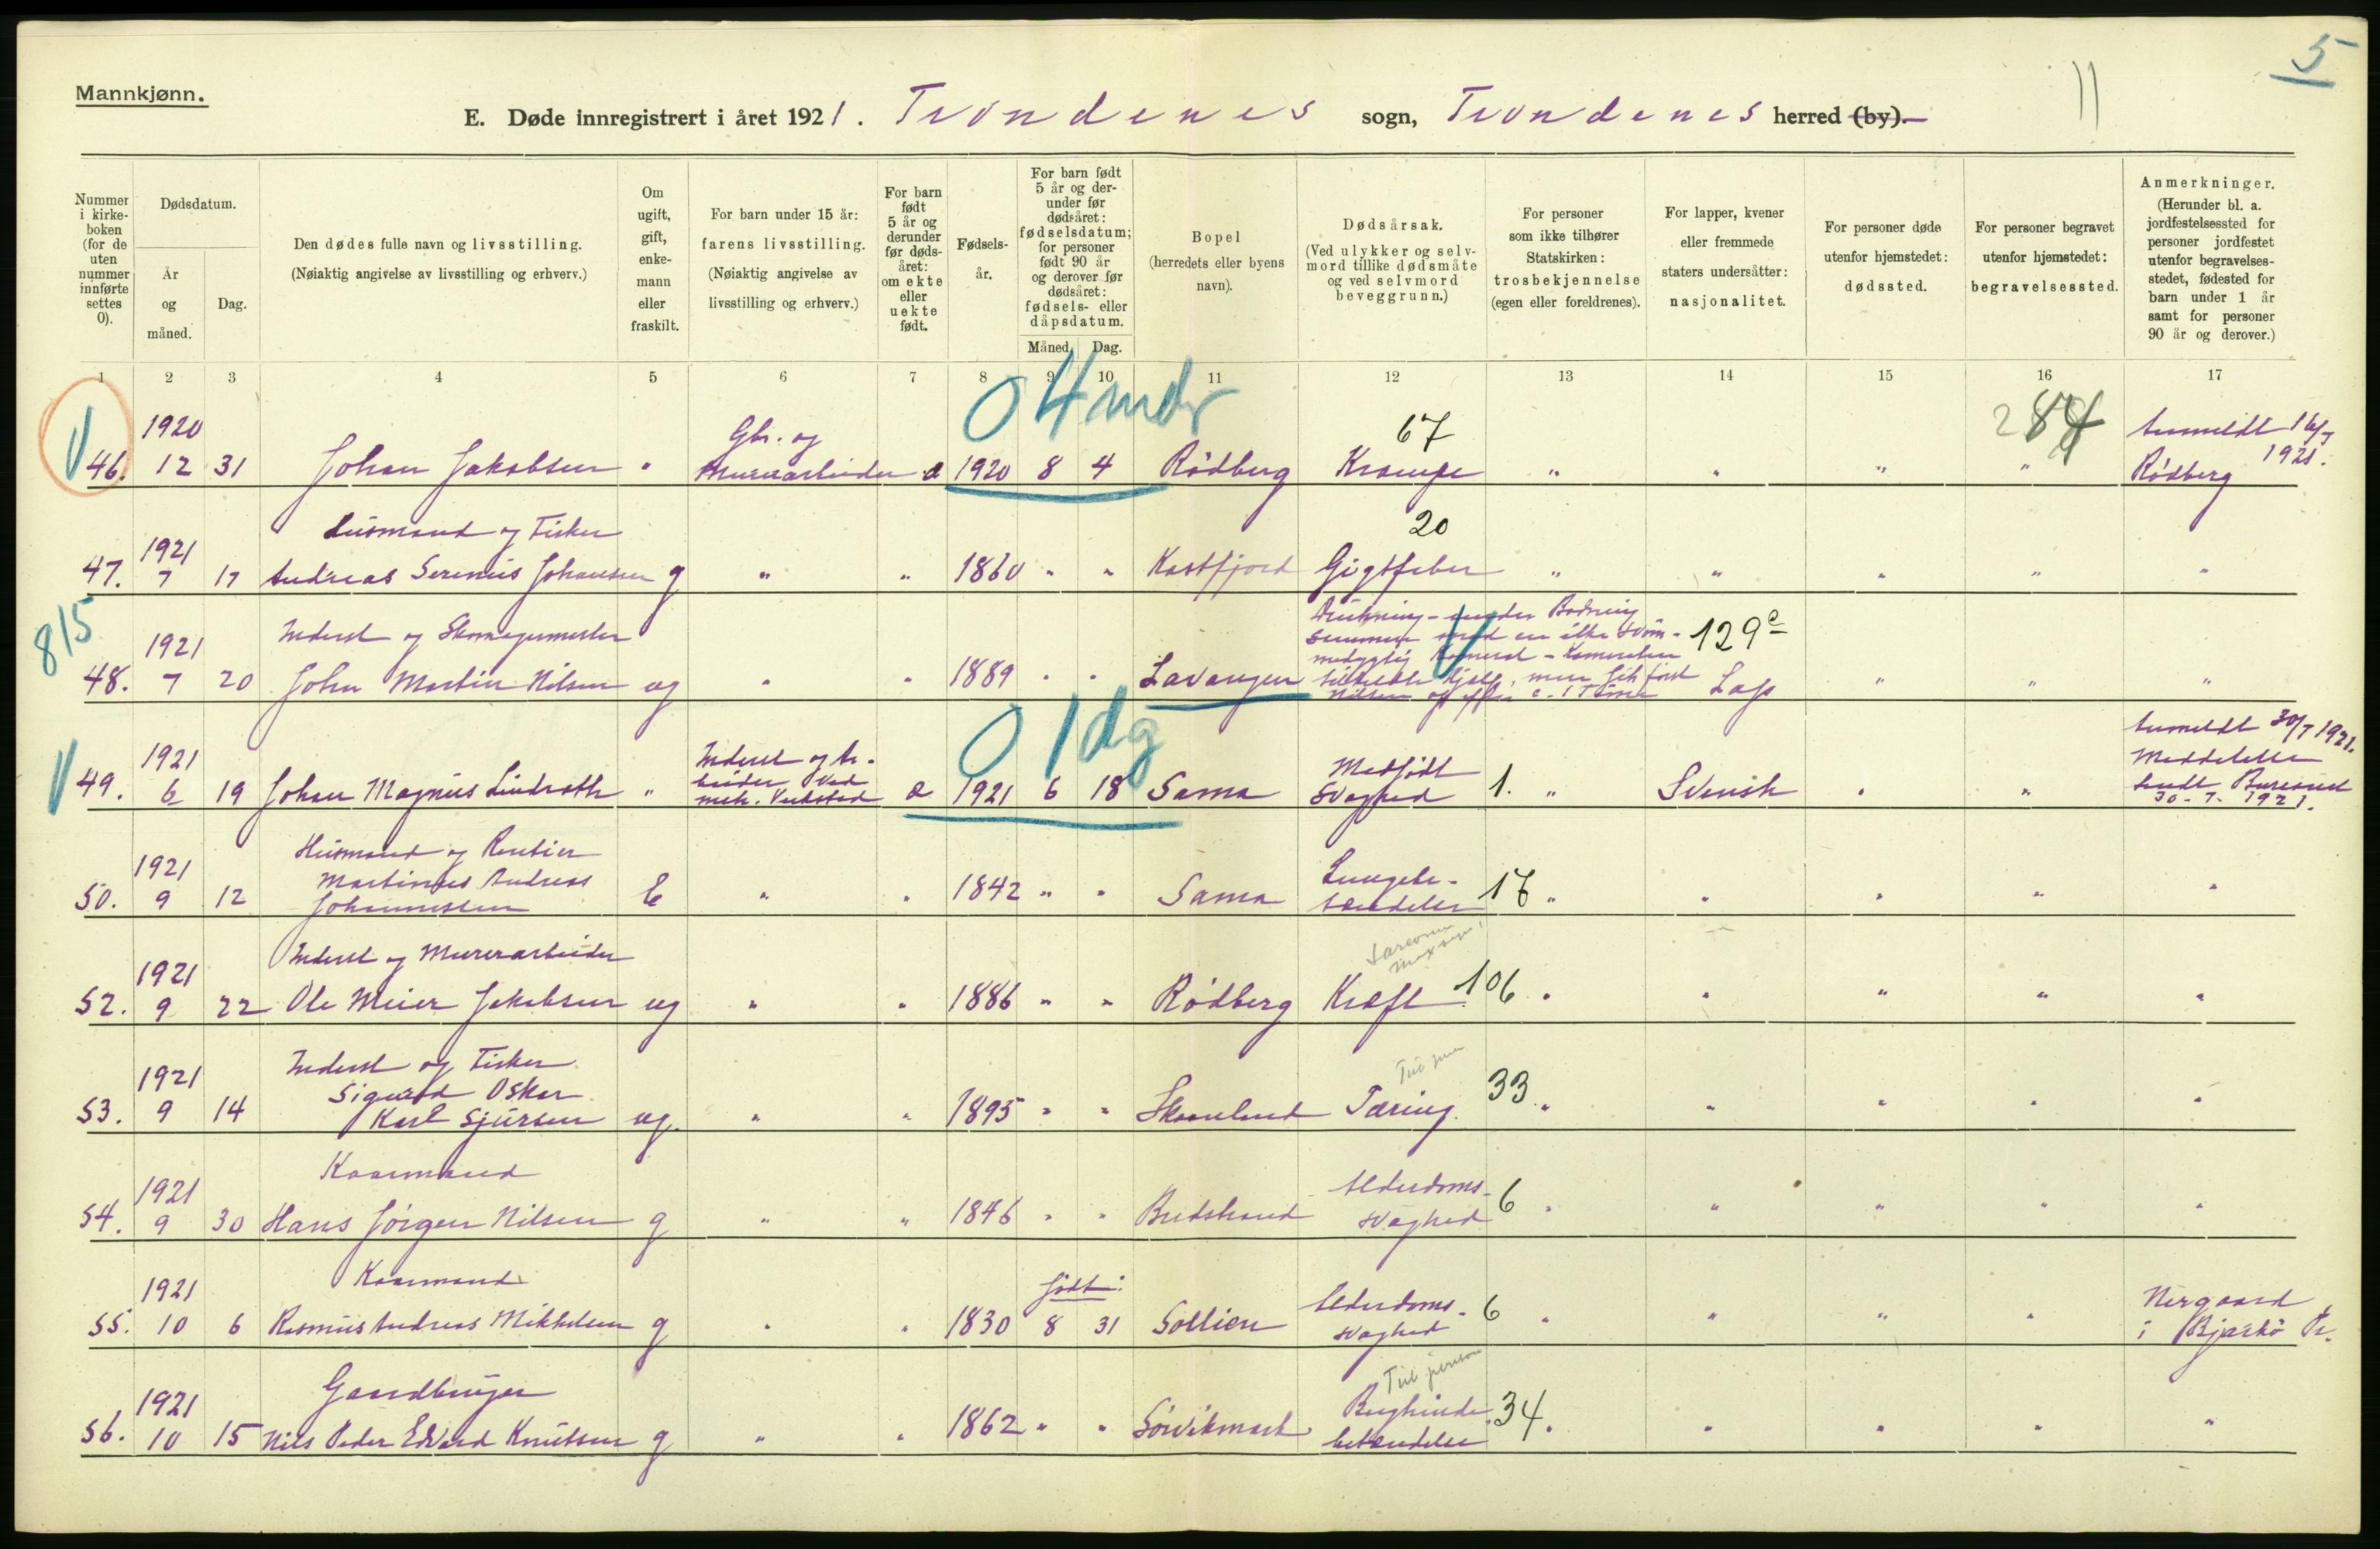 Mannkjønn.
5
E. Døde innregistrert i året 1921. Trondenes sogn, Trondenes herred (by).
11
Nummer i kirke-boken (for de uten nummer innførte settes 0).
Dødsdatum.
År og måned.
Dag.
Den dødes fulle navn og livsstilling.
(Nøiaktig angivelse av livsstilling og erhverv.)
Om ugift, gift, enke-mann eller fraskilt.
For barn under 15 år: farens livsstilling.
(Nøiaktig angivelse av livsstilling og erhverv.)
For barn født 5 år og derunder før døds-året: om ekte eller uekte født.
Fødsels-år.
For barn født 5 år og der-under før dødsåret: fødselsdatum; for personer født 90 år og derover før dødsåret: fødsels- eller dåpsdatum.
Måned. Dag.
Bopel (herredets eller byens navn).
Dødsårsak.
(Ved ulykker og selv-mord tillike dødsmåte og ved selvmord beveggrunn.)
For personer som ikke tilhører Statskirken: trosbekjennelse (egen eller foreldrenes).
For lapper, kvener eller fremmede staters undersåtter: nasjonalitet.
For personer døde utenfor hjemstedet: dødssted.
For personer begravet utenfor hjemstedet: begravelsessted.
Anmerkninger.
(Herunder bl. a. jordfestelsessted for personer jordfestet utenfor begravelses-stedet, fødested for barn under 1 år samt for personer 90 år og derover.)
1 2 3 4 5 6 7 8 9 10 11 12 13 14 15 16 17
0 4 mdr
1920 Gbr. og 67 Anmeldt 16/7
46. 12 31 Johan Jakobsen " Murerarbeider e 1920 8 4 Rödberg Krampe " " " " Rödberg 1921.
1921 Husmand og Fisker 20
47. 7 17 Andreas Serenius Johansen g " " 1860 " " Kastfjord Gigtfeber " " " " "
815
1921 Inderst og Skomagermester Drukning - under Badning
sammen med en ikke svöm-
medygtig Kamerat - Kameraten 129c
48. 7 20 John Martin Nilsen ug " " 1889 " " Lavangen Lap " " "
0 1 dg
1921 Inderst og Ar- Medfödt Anmeldt 30/7 1921.
beider ved Meddelelse
49. 6 19 Johan Magnus Lindroth " mek. Verksted e 1921 6 18 Sama Svaghed 1. " Svensk " " sendt Bureauet
30-7-1921.
1921 Husmand og Rentier
Martinus Andreas Lungebe-
50. 9 12 Johannessen E " " 1842 " " Sama tændelse 17 " " " " "
1921 Inderst og Murerarbeider
52. 9 22 Ole Meier Jakobsen ug " " 1886 " " Rödberg Kræft 106 " " " " "
1921 Inderst og Fisker
Sigurd Oskar
53. 9 14 Karl Sjursen ug. " " 1895 " " Skaanland Tæring 33 " " " " "
1921 Kaarmand Alderdoms-
54. 9 30 Hans Jörgen Nilsen g " " 1846 " " Budstrand svaghed 6 " " " " "
1921 Kaarmand födt: Alderdoms- Nergaard
55. 10 6 Rasmus Andreas Mikkelsen g " " 1830 8 31 Sollien svaghed 6 " " " " i Bjarkö Pr.
1921 Gaardbruger Bughinde-
56. 10 15 Nils Peder Edvard Knutsen g " " 1862 " " Sörvikmark betændelse 34 " " " " "